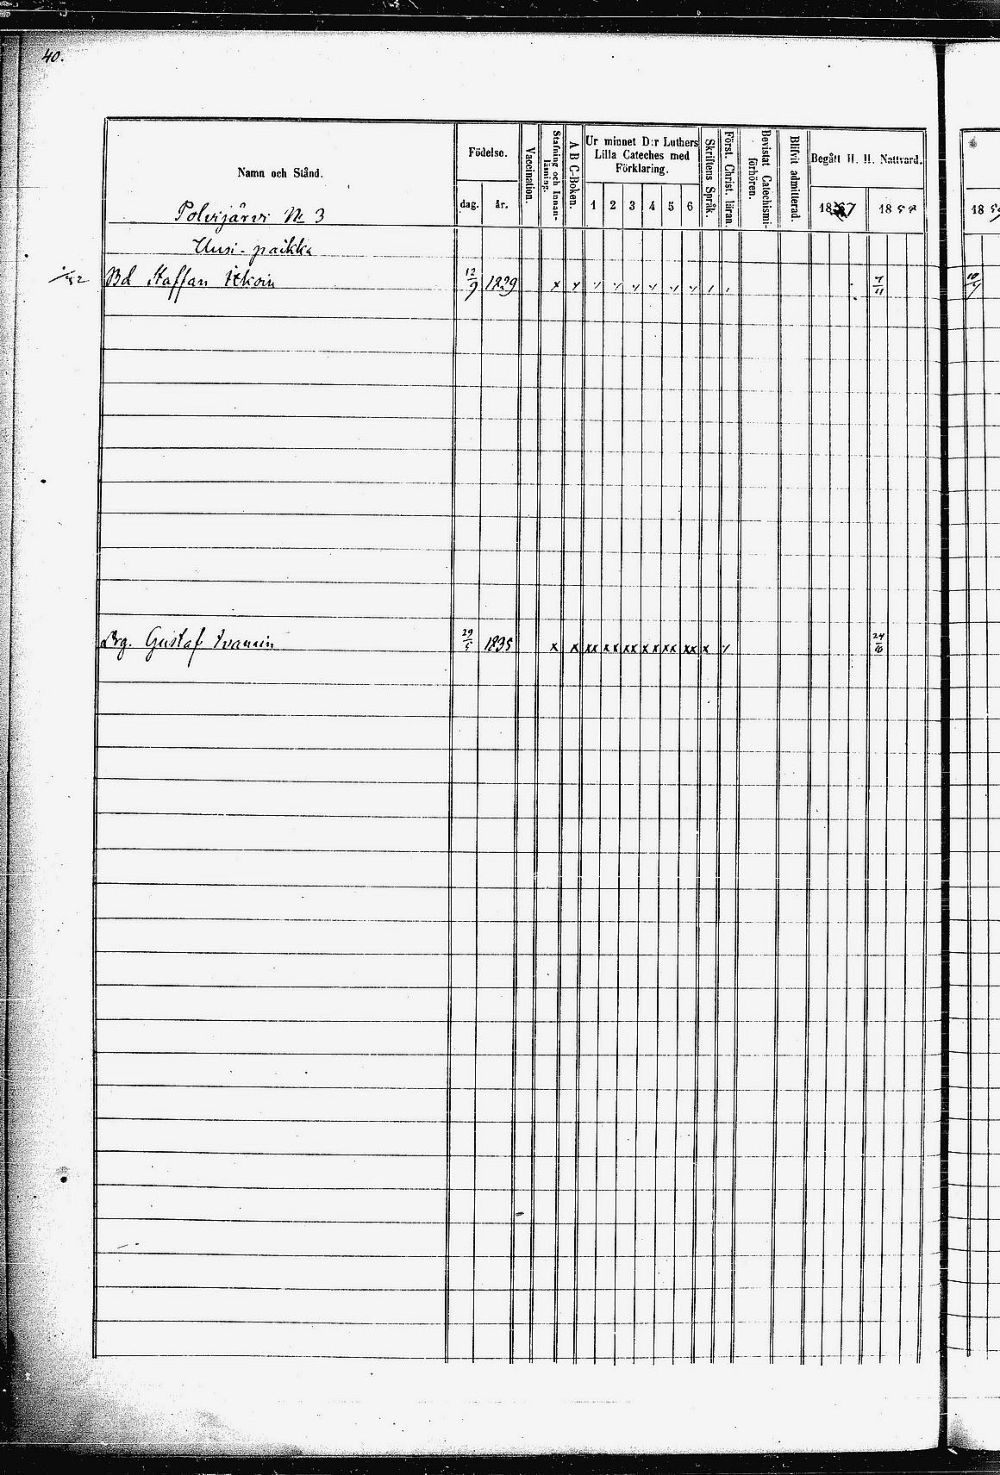 40.
Namn och Stånd.
Födelse.
dag. år.
Vaccination.
Stafning och Innan-läsning.
A B C-Boken.
Ur minnet D:r Luthers
Lilla Cateches med
Förklaring.
1 2 3 4 5 6
Skriftens Språk.
Först. Christ. läran.
Bevistat Catechismi-förhören.
Blifvit admitterad.
Begått H. H. Nattvard.
1857 1858
Polvijärvi No 3
Uusi-paikka
Bd Staffan Itkoin 12/9 1839 x x 7/11
Drg. Gustaf Ivanain 29/5 1835 x x xx xx xx xx xx xx x 24/6